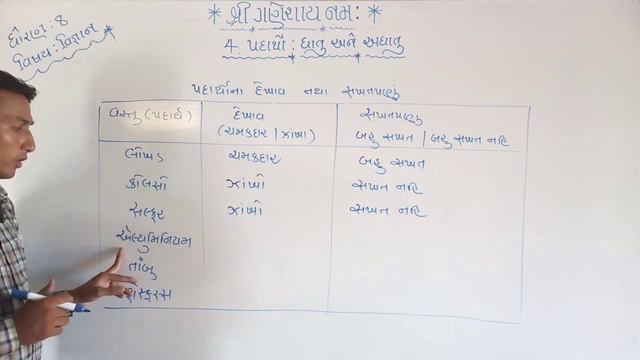 ધોરણ: 8
વિષય: વિજ્ઞાન
* શ્રી ગણેશાય નમઃ *
4. પદાર્થો : ધાતુ અને અધાતુ
પદાર્થોના દેખાવ તથા સખતપણું
વસ્તુ (પદાર્થ) દેખાવ (ચમકદાર / ઝાંખા) સખતપણું બહુ સખત / બહુ સખત નહિ
લોખંડ ચમકદાર બહુ સખત
કોલસો ઝાંખો સખત નહિ
સલ્ફર ઝાંખો સખત નહિ
એલ્યુમિનિયમ
તાંબુ